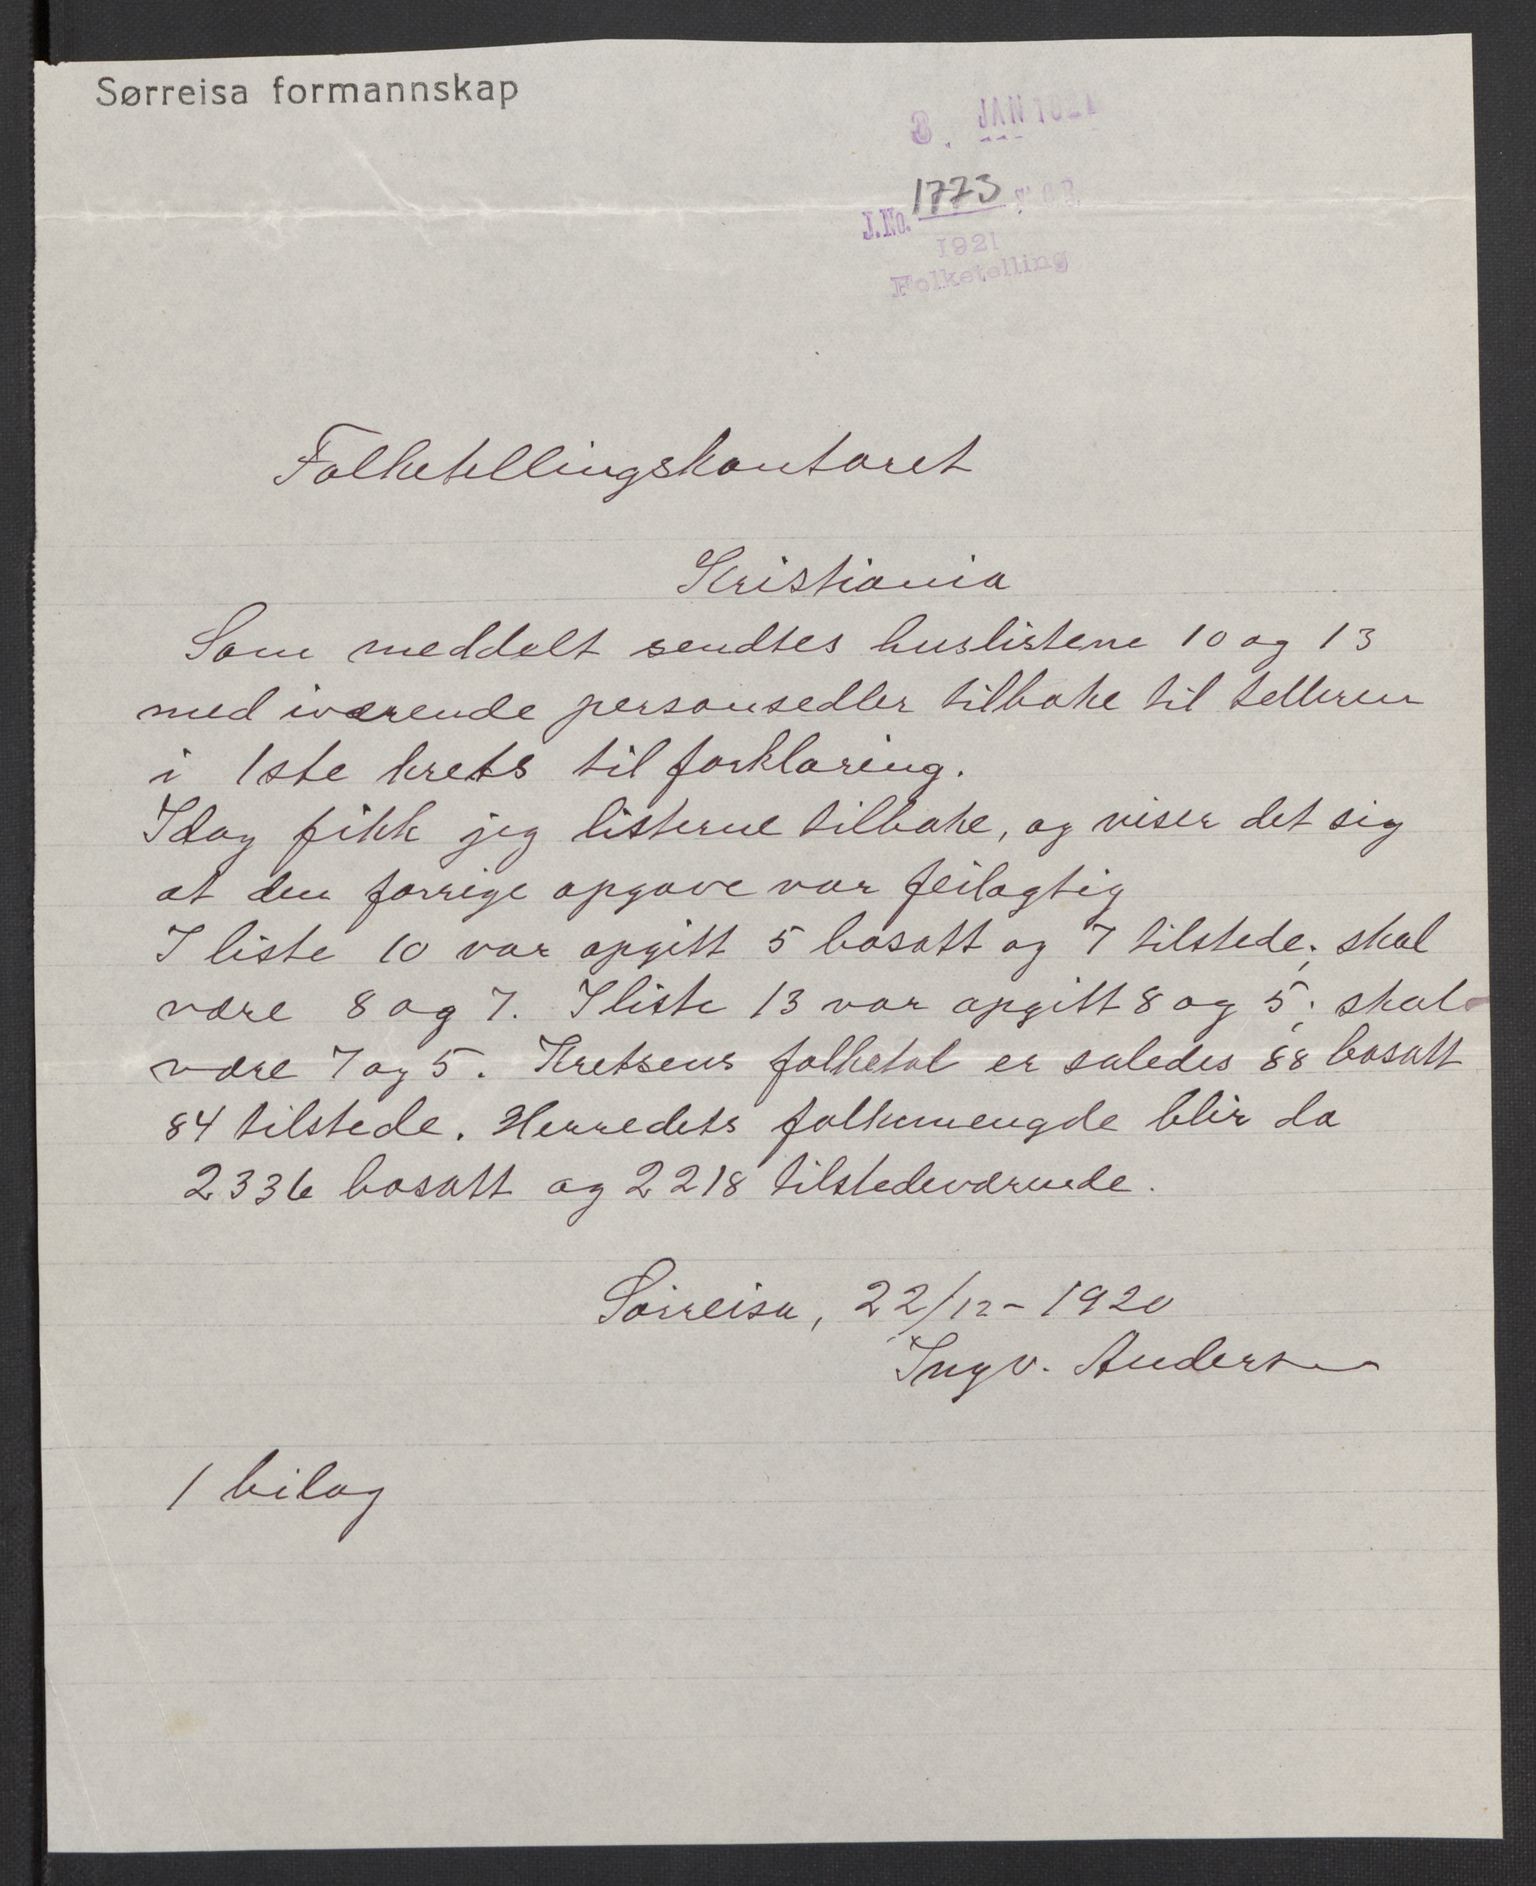 Sørreisa formannskap
3. JAN 1921
J.No. 1773
1921
Folketelling
Folketellingskontoret
Kristiania
Som meddelt sendtes huslistene 10 og 13
med iværende personsedler tilbake til telleren
i 1ste krets til forklaring.
Idag fikk jeg listerne tilbake, og viser det sig
at den forrige opgave var feilagtig
I liste 10 var opgitt 5 bosatt og 7 tilstede; skal
være 8 og 7. I liste 13 var opgitt 8 og 5; skal
være 7 og 5. Kretsens folketal er saledes 88 bosatt
84 tilstede. Herredets folkemengde blir da
2336 bosatt og 2218 tilstedeværende.
Sørreisa, 22/12- 1920
Ingv. Andersen
1 bilag